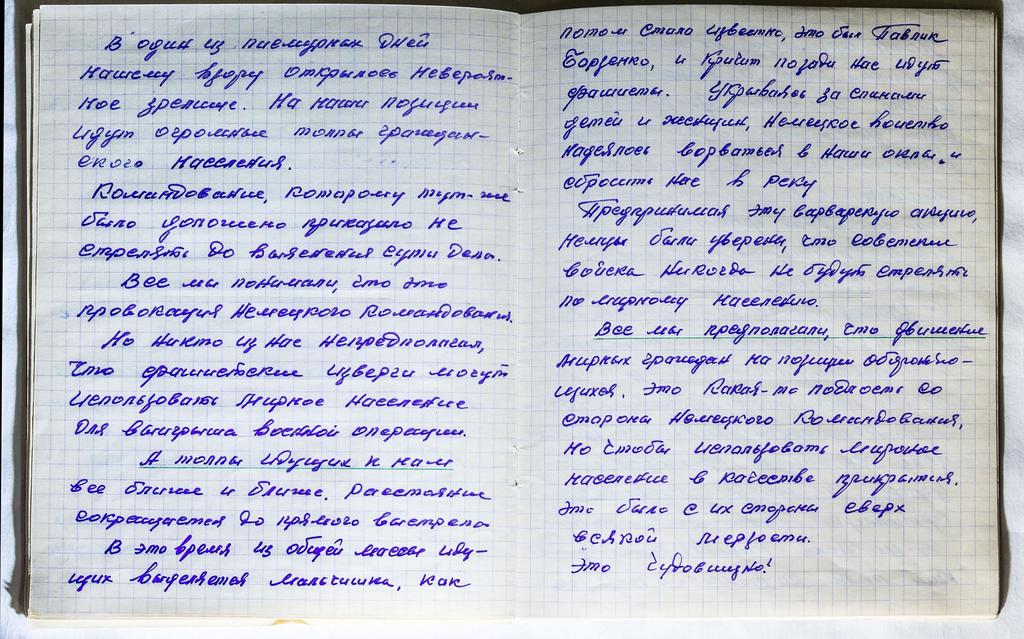 В один из пасмурных дней
нашему взору открылось невероят-
ное зрелище. На наши позиции
идут огромные толпы граждан-
ского населения.
Командование, которому тут-же
было доложено приказало не
стрелять до выяснения сути дела.
Все мы понимали, что это
провокация немецкого командования.
Но никто из нас непредполагал,
что фашистские изверги могут
использовать мирное население
для выигрыша военной операции.
А толпы идущих к нам
все ближе и ближе. Расстояние
сокращается до прямого выстрела
В это время из общей массы иду-
щих выделяется мальчишка, как
потом стало известно, это был Павлик
Борзенко, и кричит позади нас идут
фашисты. Укрываясь за спинами
детей и женщин, немецкое воинство
надеялось ворваться в наши окопы и
сбросить нас в реку
Предпринимая эту варварскую акцию,
немцы были уверены, что советские
войска никогда не будут стрелять
по мирному населению.
Все мы предполагали, что движение
мирных граждан на позиции обороняю-
щихся, это какая-то подлость со
стороны немецкого командования,
но чтобы использовать мирное
население в качестве прикрытия.
Это было с их стороны сверх
всякой мерзости.
Это чудовищно!